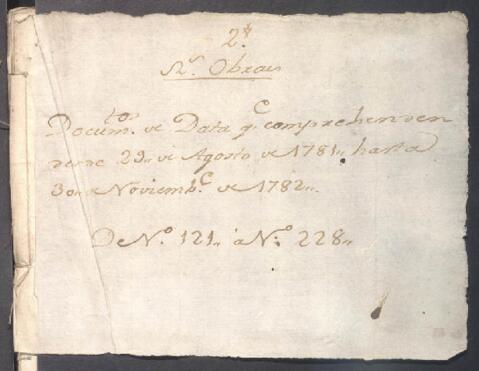 2ª
Rs. Obras
Documtos. de Data qe. comprehenden
desde 29,, de Agosto de 1781,, hasta
30,, de Noviembre. de 1782,,.
De Nº. 121,, à Nº. 228,,